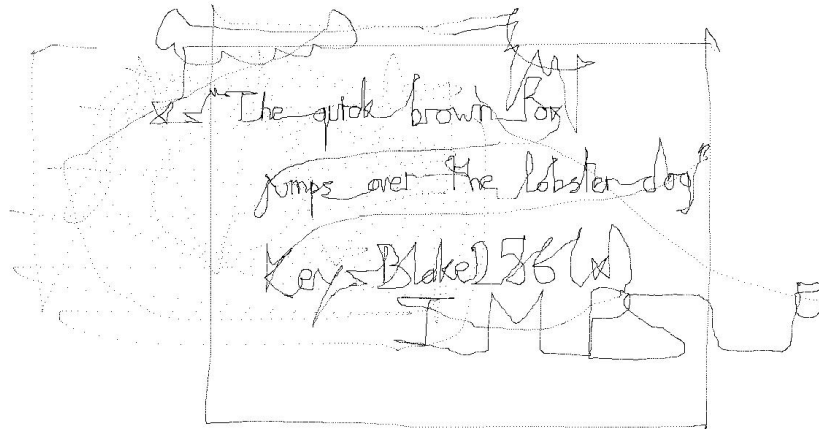 x="The quick brown fox
jumps over the lobster dog"
Key=Blake256(x)